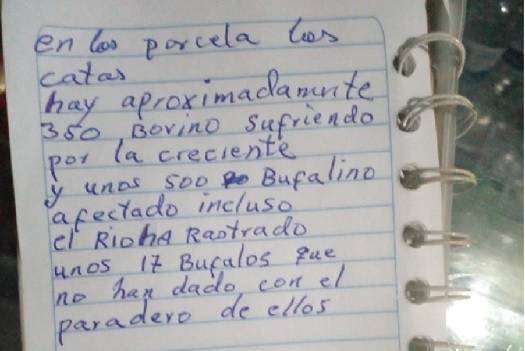 en los parcela los
catas
hay aproximadamnte
350 Bovino sufriendo
por la creciente
y unos 500 Bufalino
afectado incluso
el Rio ha Rastrado
unos 17 Bufalos que
no han dado con el
paradero de ellos